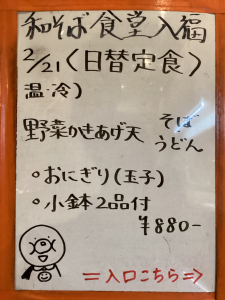 和そば食堂 入福
2/21(日替定食)
温・冷)
野菜かきあげ天 そば
うどん
○おにぎり(玉子)
○小鉢2品付
¥880-
＝入口こちら⇒